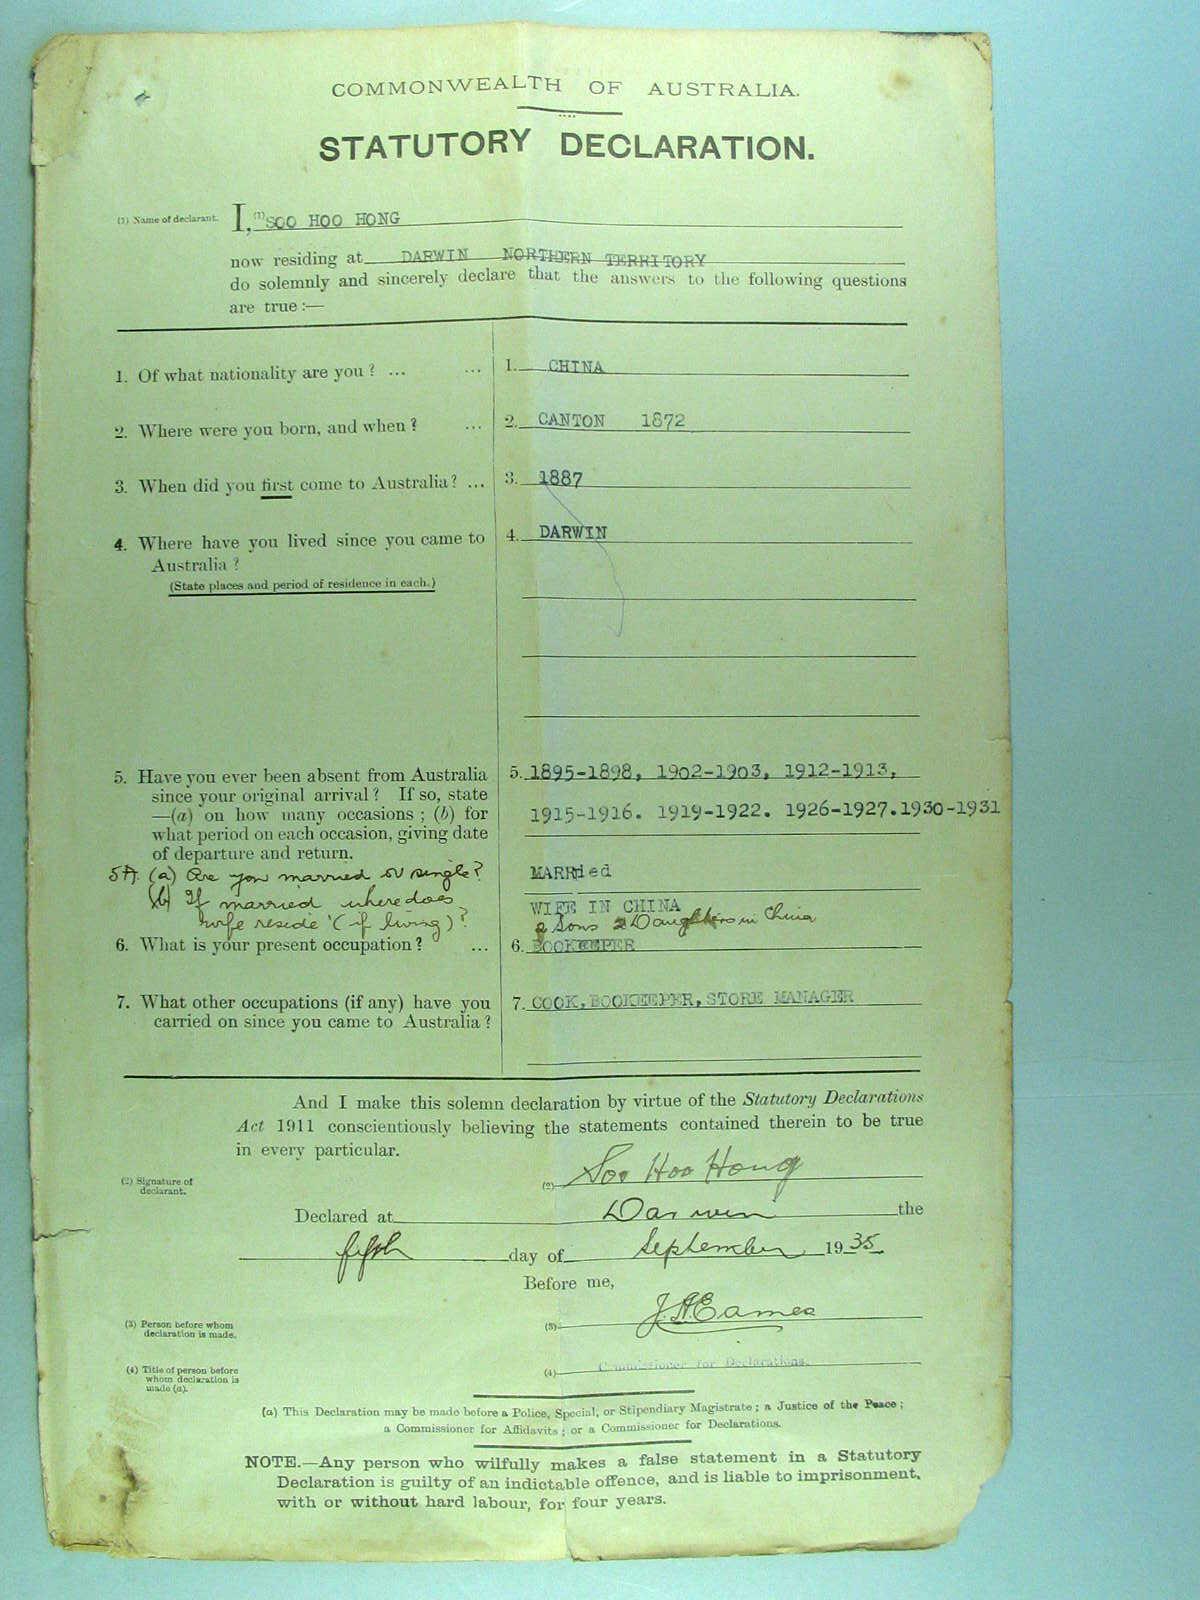 COMMONWEALTH OF AUSTRALIA.
STATUTORY DECLARATION.
(1) Name of declarant. I, (1) SOO HOO HONG
now residing at DARWIN NORTHERN TERRITORY
do solemnly and sincerely declare that the answers to the following questions
are true :—
1. Of what nationality are you ? ... ... 1. CHINA
2. Where were you born, and when ? ... 2. CANTON 1872
3. When did you first come to Australia ? ... 3. 1887
4. Where have you lived since you came to 4. DARWIN
Australia ?
(State places and period of residence in each.)
5. Have you ever been absent from Australia 5. 1895-1898, 1902-1903, 1912-1913,
since your original arrival ? If so, state
—(a) on how many occasions ; (b) for 1915-1916. 1919-1922. 1926-1927.1930-1931
what period on each occasion, giving date
of departure and return.
5A. (a) Are you married or single? MARRied
(b) If married where does WIFE IN CHINA
wife reside (if living)? Sons 2 Daughters in China
6. What is your present occupation ? ... 6. BOOKEEPER
7. What other occupations (if any) have you 7. COOK, BOOKEEPER, STORE MANAGER
carried on since you came to Australia ?
And I make this solemn declaration by virtue of the Statutory Declarations
Act 1911 conscientiously believing the statements contained therein to be true
in every particular.
(2) Signature of declarant. (2) Soo Hoo Hong
Declared at Darwin the
fifth day of September 1935
Before me,
(3) Person before whom declaration is made. (3) J.H.Eames
(4) Title of person before whom declaration is made (a). (4) Commissioner for Declarations.
(a) This Declaration may be made before a Police, Special, or Stipendiary Magistrate ; a Justice of the Peace ;
a Commissioner for Affidavits ; or a Commissioner for Declarations.
NOTE.—Any person who wilfully makes a false statement in a Statutory
Declaration is guilty of an indictable offence, and is liable to imprisonment,
with or without hard labour, for four years.